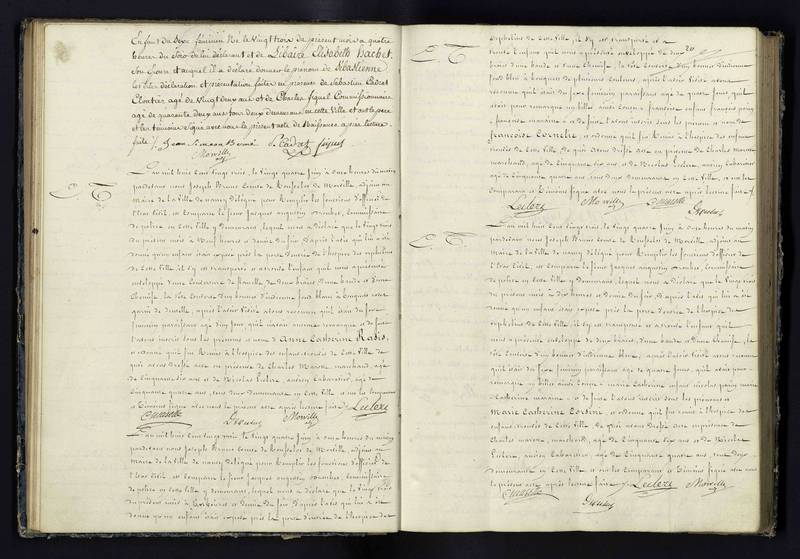 Enfant du Sexe féminin Né le Vingt trois du présent mois a quatre
heures du Soir de lui déclarant et de Libaire Elisabeth Hachet,
Son Epouse et auquel il a déclaré donner le prénom de Sébastienne
les dite déclaration et présentation faites en présence de Sébastien Cadret
Cloutier agé de Vingt deux ans et de Charles Siquel Commissionnaire
agé de quarante deux ans tous deux demeurans en cette Ville et ont le père
et les témoins Signé avec nous le présent acte de Naissance après lecture
faite
S. Cadret Siquel
Morville
E. T.
L'an mil huit cent vingt trois, le vingt quatre juin à onze heures du matin
pardevant nous Joseph Comte de Morville, adjoint au
maire de la Ville de nancy délégué pour remplir les fonctions d'officier de
l'état Civil, est comparu le sieur Jacques augustin commissaire
de police en cette Ville y demeurant, lequel nous a déclaré que le vingt trois
du présent mois à neuf heures et demie du Soir, d'après l'avis qui lui a été
donné qu'un enfant était exposé près la porte d'entrée de l'hospice des orphelins
de cette Ville, il s'y est transporté et a trouvé l'enfant qu'il nous a présenté
enveloppé d'une de flanelle de deux braies d'une bande et d'une
Chemise, la tête couverte d'un bonnet d'indienne fond blanc à bouquets rouges
garni de dentelle, après l'avoir visité avons reconnu qu'il était du sexe
féminin paraissant agé d'un jour qu'il n'avait aucune remarque et de suite
l'avons inscrit sous les prénoms et nom d'Anne Catherine Rabis,
et ordonné qu'il fut remis à l'hospice des enfans trouvés de cette Ville de
quoi avons dressé acte en présence de Charles Marotte marchand, agé
de Cinquante six ans et de Nicolas Leclerc, ancien Cabaretier, agé de
Cinquante quatre ans, tous deux demeurans en cette Ville, et ont les comparans
et témoins signé avec nous le présent acte après lecture faite
Leclerc
C Marotte Morville
L'an mil huit cent vingt trois, le vingt quatre juin à onze heures du matin
pardevant nous Joseph Comte de Morville, adjoint au
maire de la Ville de nancy délégué pour remplir les fonctions d'officier de
l'état Civil, est comparu le sieur Jacques augustin commissaire
de police en cette Ville y demeurant, lequel nous a déclaré que le vingt trois
du présent mois à heures et demie du Soir d'après l'avis qui lui a été
donné qu'un enfant était exposé près la porte d'entrée de l'hospice des
E. T.
orphelins de cette Ville, il s'y est transporté et a
trouvé l'enfant qu'il nous a présenté enveloppé de deux
braies d'une bande et d'une Chemise, la tête couverte d'un bonnet d'indienne
fond bleu à bouquets de plusieurs couleurs, après l'avoir visité avons
reconnu qu'il était du sexe féminin paraissant agé de quatre jours, qu'il
avait pour remarque un billet ainsi conçu « françoise enfant
françoise » et de suite l'avons inscrit sous les prénom et nom de
françoise et ordonné qu'il fut remis à l'hospice des enfans
trouvés de cette Ville, de quoi avons dressé acte en présence de Charles marotte
marchand, agé de Cinquante six ans et de Nicolas Leclerc, ancien Cabaretier
agé de Cinquante quatre ans, tous deux demeurans en cette Ville, et ont les
comparans et témoins signé avec nous le présent acte après lecture faite
Leclerc Morville C Marotte
E. T.
L'an mil huit cent vingt trois, le vingt quatre juin à onze heures du matin
pardevant nous Joseph Comte de Morville, adjoint au
maire de la Ville de nancy délégué pour remplir les fonctions d'officier de
l'état Civil, est comparu le sieur Jacques augustin commissaire
de police en cette Ville y demeurant, lequel nous a déclaré que le vingt trois
du présent mois à dix heures et demie du Soir, d'après l'avis qui lui a été
donné qu'un enfant était exposé près la porte d'entrée de l'hospice des
orphelins de cette Ville, il s'y est transporté et a trouvé l'enfant qu'il
nous a présenté enveloppé de deux braies, d'une bande et d'une Chemise, la
tête couverte d'un bonnet d'indienne bleue, après l'avoir visité avons reconnu
qu'il était du sexe féminin paraissant agé de quatre jours, qu'il avait pour
remarque un billet ainsi conçu « marie Catherine enfant
Catherine » et de suite l'avons inscrit sous les prénoms et
Marie Catherine et ordonné qu'il fut remis à l'hospice des
enfans trouvés de cette Ville, de quoi avons dressé acte en présence de
Charles marotte, marchand, agé de Cinquante six ans et de Nicolas
Leclerc, ancien Cabaretier, agé de Cinquante quatre ans, tous deux
demeurans en cette Ville, et ont les comparans et témoins signé avec nous
le présent acte après lecture faite
C Marotte Leclerc Morville